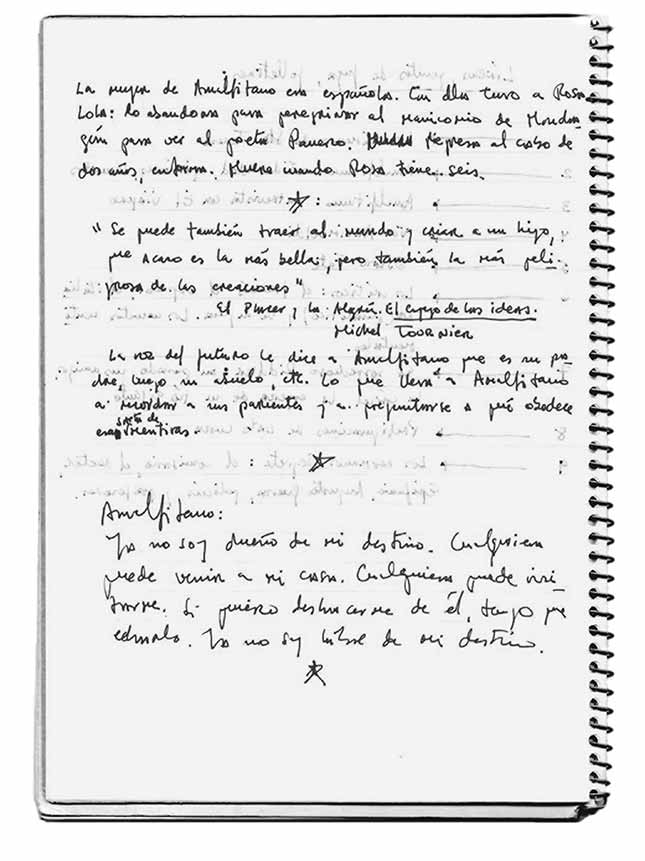 La mujer de Amalfitano era española. Con ella tuvo a Rosa
Lola: lo abandona para peregrinar al manicomio de Mondra-
gón para ver al poeta Panero. Regresa al cabo de
dos años, enferma. Muere cuando Rosa tiene seis.
"Se puede también traer al mundo y criar a un hijo,
que acaso es la más bella, pero también la más peli-
grosa de las creaciones"
El Placer y la El espejo de las ideas.
Michel TOURNIER
La voz del futuro le dice a Amalfitano que es su pa-
dre, luego su abuelo, etc. Lo que lleva a Amalfitano
a recordar a sus parientes y a preguntarse a qué obedece
esa mentiras.
Amalfitano:
Ya no soy dueño de mi destino. Cualquiera
puede venir a mi casa. Cualquiera puede
Si quiero de él, tengo que
Ya no soy libre de mi destino.